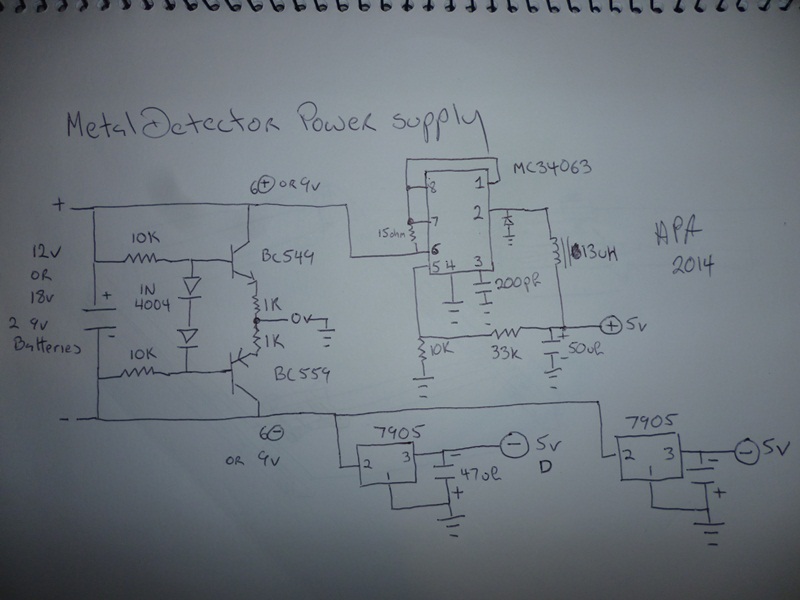 Metal Detector Power supply
6+ OR 9v
MC34063
+
8
1
7
2
15ohm
6
5
4
3
200pf
10K
BC549
12v
OR
18v
2 9v
Batteries
+
IN
4004
1K
0v
1K
10K
BC559
13uH
APA
2014
+ 5v
10K
33K
+
50uf
-
-
6-
OR 9v
7905
2
3
1
- 5v
D
-
47uf
+
7905
2
3
1
- 5v
-
+